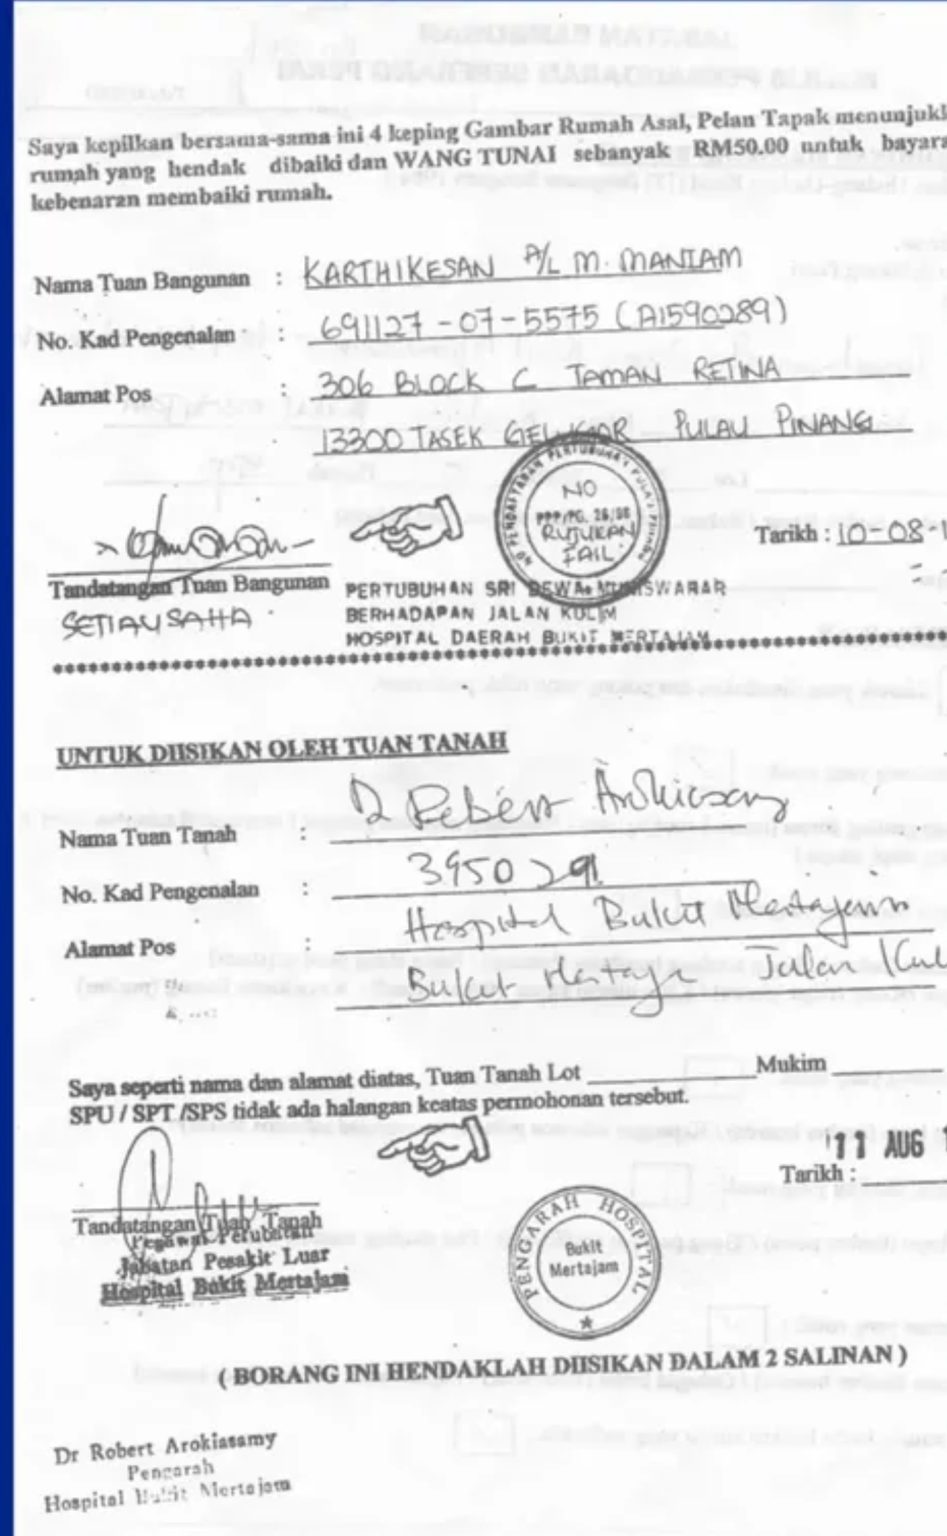 Saya kepilkan bersama-sama ini 4 keping Gambar Rumah Asal, Pelan Tapak menunjukk
rumah yang hendak dibaiki dan WANG TUNAI sebanyak RM50.00 untuk bayara
kebenaran membaiki rumah.
Nama Tuan Bangunan : KARTHIKESAN A/L M. MANIAM
No. Kad Pengenalan : 691127-07-5575 (A1590289)
Alamat Pos : 306 BLOCK C TAMAN RETINA
13300 TASEK GELUGOR PULAU PINANG
NO PENDAFTARAN PERTUBUHAN PULAU PINANG
NO
PPP/PG. 26/98
RUJUKAN
FAIL.
Tarikh : 10-08-
Tandatangan Tuan Bangunan
SETIAUSAHA
PERTUBUHAN SRI DEWA MUNISWARAR
BERHADAPAN JALAN KULIM
HOSPITAL DAERAH BUKIT MERTAJAM
UNTUK DIISIKAN OLEH TUAN TANAH
Nama Tuan Tanah : Robert
No. Kad Pengenalan : 3950291
Alamat Pos : Hospital Bukit Mertajam
Bukit Mertaja Jalan Kul
Saya seperti nama dan alamat diatas, Tuan Tanah Lot Mukim
SPU / SPT /SPS tidak ada halangan keatas permohonan tersebut.
Tarikh : 11 AUG
Tandatangan Tuan Tanah
Pegawai Perubatan
Jabatan Pesakit Luar
Hospital Bukit Mertajam
PENGARAH HOSPITAL
Bukit
Mertajam
( BORANG INI HENDAKLAH DIISIKAN DALAM 2 SALINAN )
Dr Robert Arokiasamy
Pengarah
Hospital Bukit Mertajam